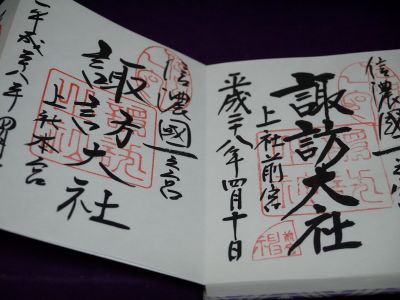 信濃國一之宮
諏訪大社
上社前宮
平成二八年四月十日
信濃國一之宮
諏訪大社
上社本宮
平成二八年四月